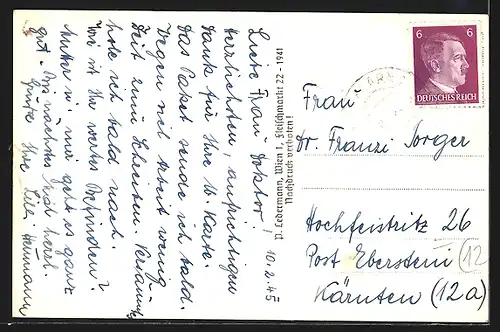 Liebe Frau Doktor!
10.2.45
Herrlichsten, aufrichtigen
Dank für Ihre lb. Karte.
Das Paket sende ich bald.
Wegen viel Arbeit wenig
Zeit zum Schreiben.
hole ich bald nach.
Wie ist Ihr wertes Befinden?
Mutter u. mir geht es ganz
gut. Bis nächstes Mal herzl.
Grüße Ihre Lili Hermann
P. Ledermann, Wien I, Fleischmarkt 22 – 1941
Nachdruck verboten!
6 6
DEUTSCHES REICH
Frau
Dr. Franzi Sorger
Hochfeistritz 26
Post Eberstein (12
Kärnten (12a)